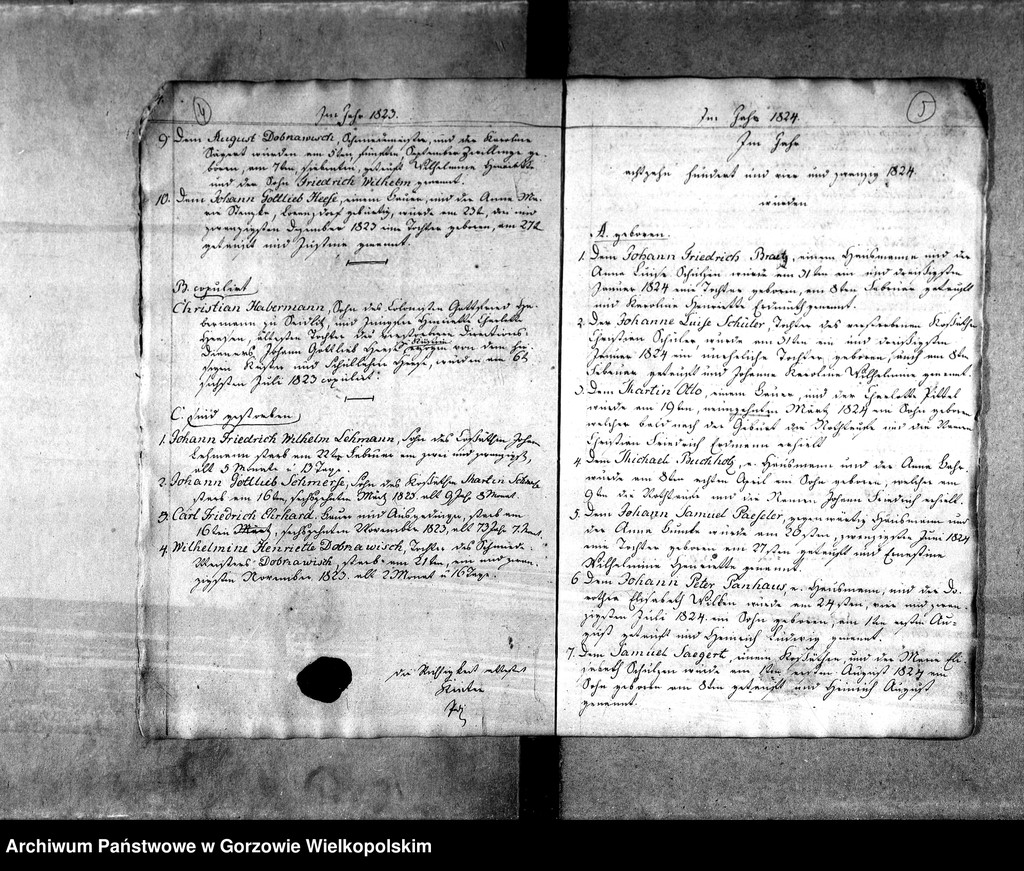 4
Im Jahr 1823.
9. Dem August Dobnawisch, Schmiedemeister, und der Karoline
Sägert wurden am 5ten, fünften, September Zwillinge ge-
boren, am 7ten, siebenten, getauft Wilhelmine Henriette
und der Sohn Friedrich Wilhelm genannt.
10. Dem Johann Gottlieb Heese, einem Bauer, und der Anna Ma-
rie gebürtig, wurde am 23t, drei und
zwanzigsten Dezember 1823 eine Tochter geboren, am 27t
getauft und Justine genannt.
B. copuliet
Christian Habermann, Sohn des Colonisten Gottfried Ha-
bermann zu und Jungfer Henriette Charlotte
ältesten Tochter des verstorbenen
Johann Gottlieb von dem hie-
sigen Küster und Schullehrer wurden am 6t
sechsten Juli 1823 copuliet.
C. Sind gestorben
1. Johann Friedrich Wilhelm Lehmann, Sohn des Coßäthen Johan
Lehmann starb am 22ten Februar am zwei und zwanzigst,
alt 5 Monate u. 13 Tage.
2. Johann Gottlieb Schmerse, Sohn des Coßäthen Martin
starb am 16ten, sechszehnten März 1823. alt 9 Jah. 8 Monat.
3. Carl Friedrich Ehrhard. Bauer und starb am
16ten sechszehnten November 1823, alt 73 Jah. 7 Monat.
4. Wilhelmine Henriette Dobnawisch, Tochter des Schmiede-
Meisters Dobnawisch, starb am 21ten, ein und zwan-
zigsten November 1823. alt 2 Monat u 16 Tage.
die Richtigkeit attestirt
5
Im Jahr 1824.
Im Jahr
achtzehn hundert und vier und zwanzig 1824.
wurden
A. geboren.
1. Dem Johann Friedrich Braetz, einem Hausmanne und der
Anna Luise Schulzin wurde am 31ten ein und dreißigsten
Januar 1824 eine Tochter geboren, am 8ten Februar getauft
und Karoline Henriette Erdmuth genannt.
2. Der Johanne Luise Schüler, Tochter des verstorbenen Coßäthen
Christian Schüler, wurde am 31ten ein und dreißigsten
Januar 1824 eine uneheliche Tochter geboren, auch am 8ten
Februar getauft und Johanne Karoline Wilhelmine genannt.
3. Dem Martin Otto, einem Bauer, und der Charlotte Zittel
wurde am 19ten, neunzehnten März 1824 ein Sohn geboren
welcher bald nach der Geburt die Nothtaufe und die Namen
Christian Friedrich Erdmann erhielt
4. Dem Michael Buchholz, e. Hausmann und der Anna
wurde am 8ten achten April ein Sohn geboren, welcher am
9ten die Nothtaufe und die Namen Johann Friedrich erhielt.
5. Dem Johann Samuel Paeseler, gegenwärtig Hausmann und
der Anna wurde am Juni 1824
eine Tochter geboren am 27sten getauft und Ernestine
Wilhelmine Henriette genannt.
6 Dem Johann Peter Panhaus, e. Hausmann, und der Do-
rothee Elisabeth Wilken wurde am 24sten, vier und zwan-
zigsten Juli 1824. ein Sohn geboren, am 1ten ersten Au-
gust getauft und Heinrich Ludwig genannt.
7. Dem Samuel Saegert, einem Coßäthen, und der Marie Eli-
sabeth Schulzen wurde am 1ten ersten August 1824 ein
Sohn geboren am 8ten getauft und Heinrich August
genannt.
Archiwum Państwowe w Gorzowie Wielkopolskim